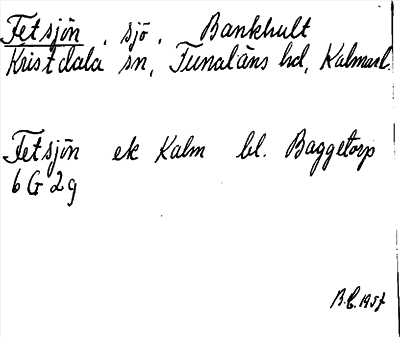 Fetsjön, sjö, Bankhult
Kristdala sn, Tunaläns hd, Kalmarl.
Fetsjön ek Kalm bl. Baggetorp
6 G 2 g
B.E. 1957